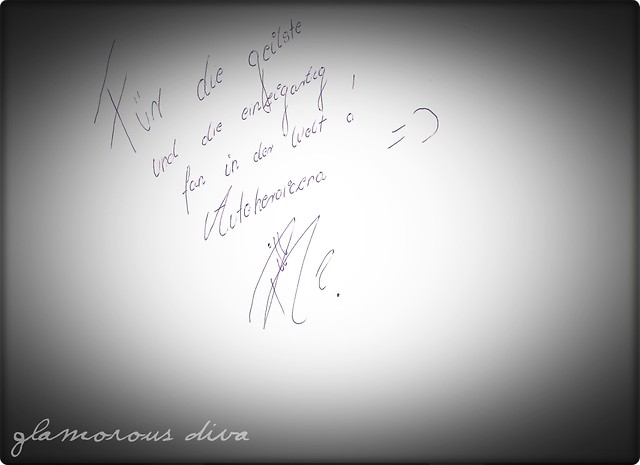 Für die geilste
und die einzigartig
fan in der Welt!
=)
glamorous diva